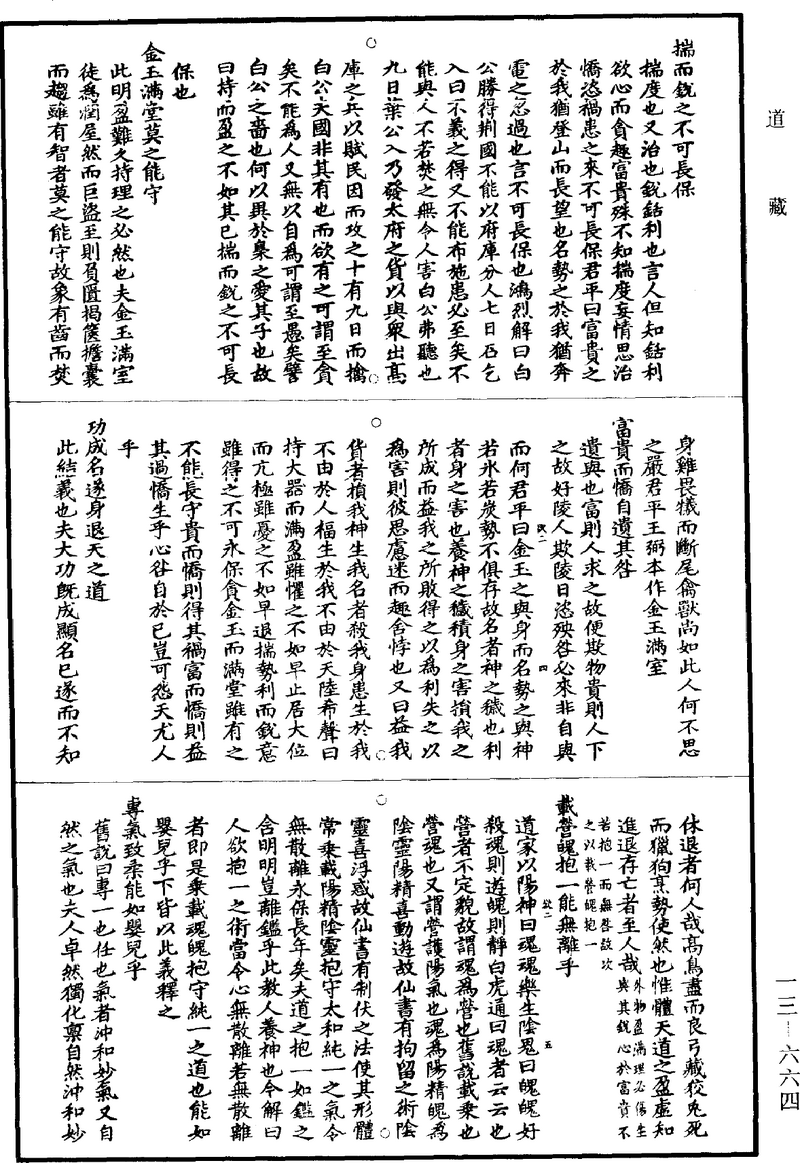 道藏
揣而銳之不可長保
揣度也又治也銳銛利也言人但知銛利
欲心而貪趣富貴殊不知揣度妄情思治
憍恣禍患之來不可長保君平曰富貴之
於我猶登山而長望也名勢之於我猶奔
電之忽過也言不可長保也鴻烈解曰白
公勝得荆國不能以府庫分人七日石乞
入曰不義之得又不能布施患必至矣不
能與人不若焚之無令人害白公弗聽也
九日葉公入乃發太府之貨以與眾出高
庫之兵以賦民因而攻之十有九日而擒
白公夫國非其有也而欲有之可謂至貪
矣不能為人又無以自為可謂至愚矣譬
白公之嗇也何以異於梟之愛其子也故
曰持而盈之不如其已揣而銳之不可長
保也
金玉滿堂莫之能守
此明盈難久持理之必然也夫金玉滿室
徒為潤屋然而巨盜至則負匱揭篋擔囊
而趨雖有智者莫之能守故象有齒而焚
身雞畏犧而斷尾禽獸尚如此人何不思
之嚴君平王弼本作金玉滿室
富貴而憍自遺其咎
遺與也富則人求之故便欺物貴則人下
之故好陵人欺陵日恣殃咎必來非自與
而何君平曰金玉之與身而名勢之與神
若氷若炭勢不俱存故名者神之穢也利
者身之害也養神之穢積身之害損我之
所成而益我之所敗得之以為利失之以
為害則彼思慮迷而趣舍悖也又曰益我
貨者損我神生我名者殺我身患生於我
不由於人福生於我不由於天陸希聲曰
持大器而滿盈雖懼之不如早止居大位
而亢極雖憂之不如早退揣勢利而銳意
雖得之不可永保貪金玉而滿堂雖有之
不能長守貴而憍則得其禍富而憍則益
其過憍生乎心咎自於已豈可怨天尤人
乎
功成名遂身退天之道
此結義也夫大功既成顯名已遂而不知
休退者何人哉高鳥盡而良弓藏狡兔死
而獵狗烹勢使然也惟體天道之盈虛知
進退存亡者至人哉外物盈滿理必傷生
與其銳心於富貴不
若抱一而無咎故次
之以載營魄抱一
載營魄抱一能無離乎
道家以陽神曰魂魂樂生陰鬼曰魄魄好
殺魂則遊魄則靜白虎通曰魂者云云也
營者不定貌故謂魂為營也舊說載乘也
營魂也又謂營護陽氣也魂為陽精魄為
陰靈陽精喜動遊故仙書有拘留之術陰
靈喜浮惑故仙書有制伏之法使其形體
常乘載陽精陰靈抱守太和純一之氣令
無散離永保長年矣夫道之抱一如鑑之
含明明豈離鑑乎此教人養神也今解曰
人欲抱一之術當令心無散離若無散離
者即是乘載魂魄抱守純一之道也能如
嬰兒乎下皆以此義釋之
專氣致柔能如嬰兒乎
舊說曰專一也任也氣者沖和妙氣又自
然之氣也夫人卓然獨化稟自然沖和妙
一三－六六四